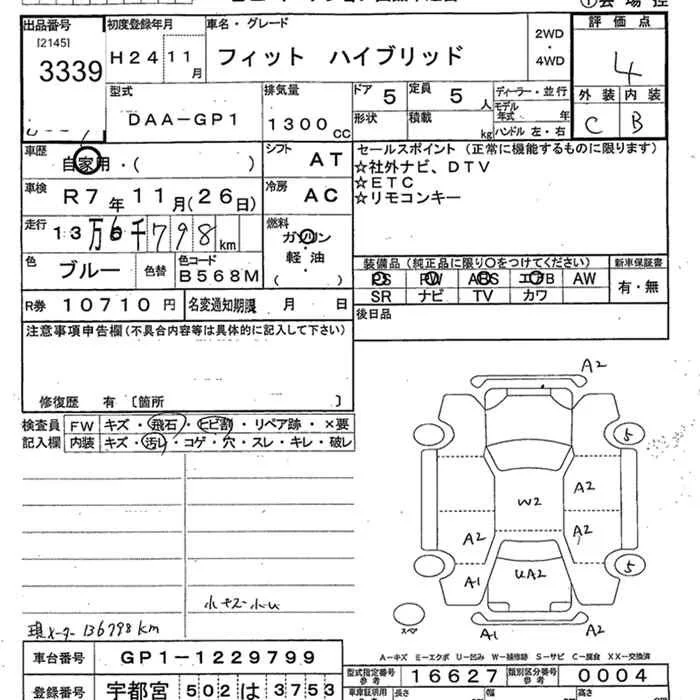 出品番号 初度登録年月 車名・グレード 2WD・4WD 評価点
[2145]
3339 H24 11月 フィット ハイブリッド 4
型式 排気量 ドア 5 定員 5人 ディーラー・並行 外装 内装
DAA-GP1 1300cc 形状 積載 kg モデル年式 年 C B
ハンドル 左・右
車歴 自家用・( ) シフト AT セールスポイント (正常に機能するものに限ります)
☆社外ナビ、DTV
車検 R7年11月(26日) 冷房 AC ☆ETC
☆リモコンキー
走行 13万6千798km 燃料 ガソリン
軽・油
( )
色 ブルー 色替 色コード B568M 装備品(純正品に限り○をつけてください) 新車保証書
PS PW ABS エアB AW 有・無
SR ナビ TV カワ
R券 10710円 名変通知期限 月 日 後日品
注意事項申告欄(不具合内容等は具体的に記入して下さい)
修復歴 有 〔箇所 〕
検査員 FW キズ・飛石・ヒビ割・リペア跡・×要
記入欄 内装 キズ・汚レ・コゲ・穴・スレ・キレ・破レ
A2
5
W2 A2
A2 A2
A1 UA2 5
スペア
A1 A2
現メーター 136798km
A-キズ E-エクボ U-凹み W-補修跡 S-サビ C-腐食 XX-交換済
車台番号 GP1-1229799 型式指定番号 参考 16627 類別区分番号 参考 0004
登録番号 宇都宮 502 は 3753 長さ 幅 高さ